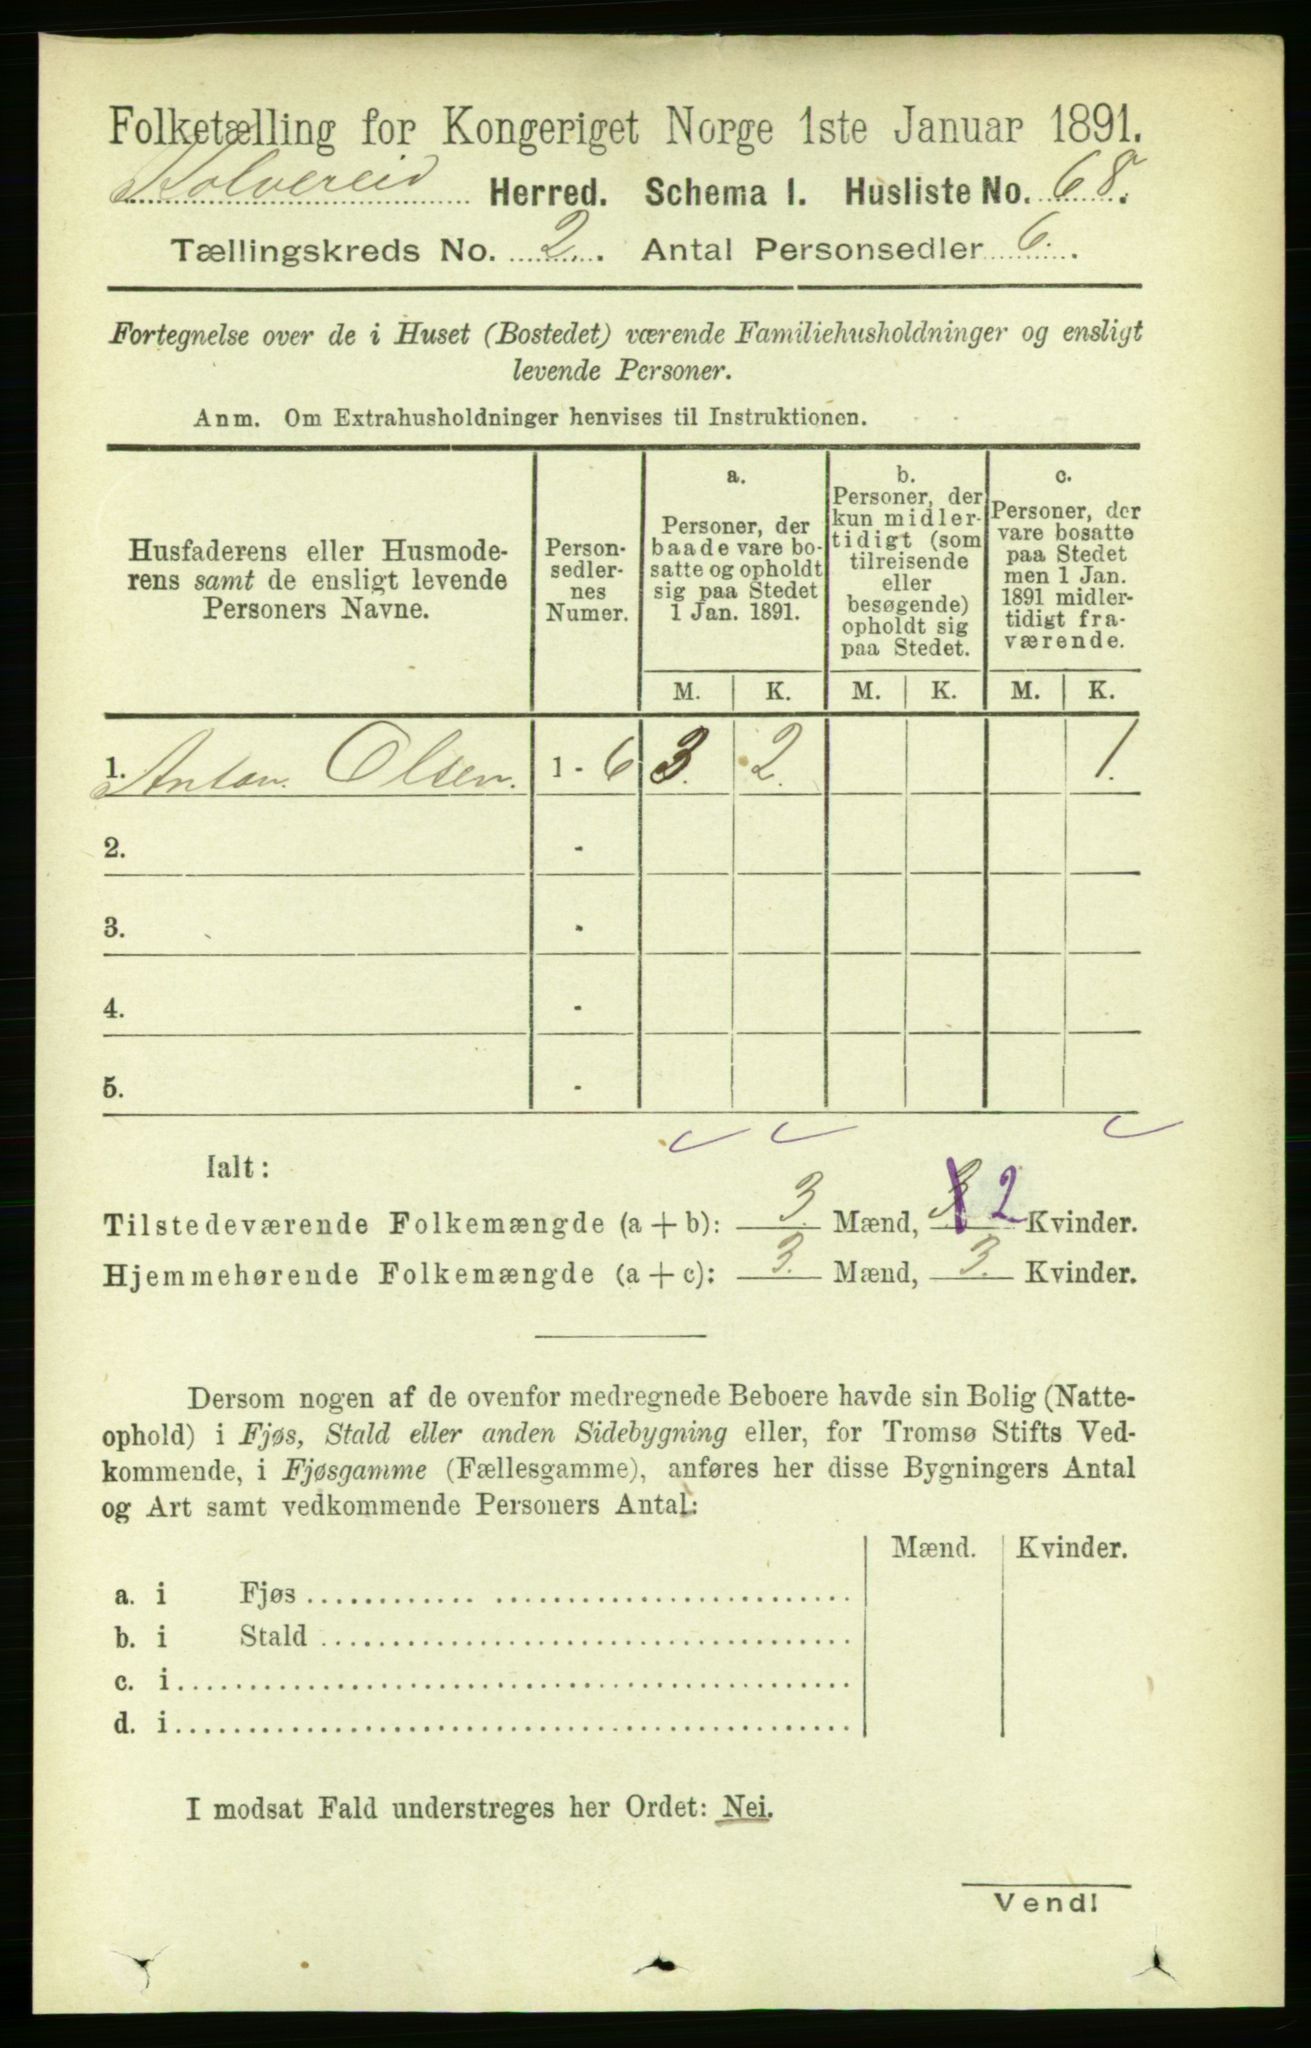 Folketælling for Kongeriget Norge 1ste Januar 1891.
Kolvereid Herred. Schema 1. Husliste No. 68.
Tællingskreds No. 2. Antal Personsedler 6.
Fortegnelse over de i Huset (Bostedet) værende Familiehusholdninger og ensligt
levende Personer.
Anm. Om Extrahusholdninger henvises til Instruktionen.
Husfaderens eller Husmode-
rens samt de ensligt levende
Personers Navne.
Person-
sedler-
nes
Numer.
a.
Personer, der
baade vare bo-
satte og opholdt
sig paa Stedet
1 Jan. 1891.
b.
Personer, der
kun midler-
tidigt (som
tilreisende
eller
besøgende)
opholdt sig
paa Stedet.
c.
Personer, der
vare bosatte
paa Stedet
men 1 Jan.
1891 midler-
tidigt fra-
værende.
M. K. M. K. M. K.
1. Anton Olsen. 1 - 6 3. 2. 1.
2. -
3. -
4. -
5. -
Ialt:
Tilstedeværende Folkemængde (a + b): 3. Mænd, 3 2 Kvinder.
Hjemmehørende Folkemængde (a + c): 3. Mænd, 3. Kvinder.
Dersom nogen af de ovenfor medregnede Beboere havde sin Bolig (Natte-
ophold) i Fjøs, Stald eller anden Sidebygning eller, for Tromsø Stifts Ved-
kommende, i Fjøsgamme (Fællesgamme), anføres her disse Bygningers Antal
og Art samt vedkommende Personers Antal:
Mænd. Kvinder.
a. i Fjøs
b. i Stald
c. i
d. i
I modsat Fald understreges her Ordet: Nei.
Vend!